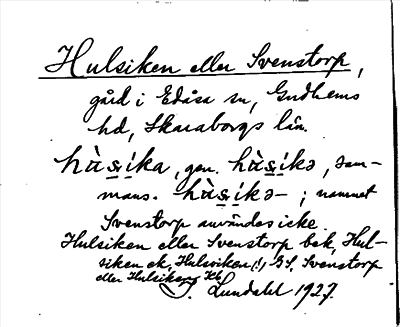 Hulsiken eller Svenstorp,
gård i Edåsa sn, Gudhems
hd, Skaraborgs län.
hùsika, gen. hùsikə, sam-
mans. hùsikə- ; namnet
Svenstorp användes icke.
Hulsiken eller Svenstorp bek, Hul-
siken ek, Hulsviken (!) GS. Svenstorp
eller Hulsiken Kb.
J. Lundahl 1927.